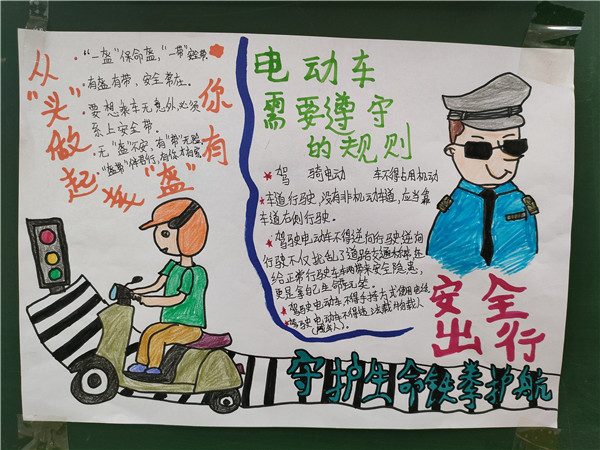 从"头"做起
"一盔"保命盔,"一带"
有盔有带,安全常在。
要想乘车无意外必须
系上安全带。
无"盔"不安,有"带"无险
"盔带"伴君行,有你才有
美"盔"你有
电动车
需要遵守
的规则
驾 骑电动 车不得占用机动
车道行驶,没有非机动车道,应当靠
车道右侧行驶。
驾驶电动车不得逆向行驶逆向
行驶不仅扰乱了道路交通秩序,还
给正常行驶车辆带来安全隐患,
更是拿自己生命在玩笑。
驾驶电动车不得手持方式使用电话
驾驶电动车不得违法载物载人
安全
出行
守护生命铁拳护航